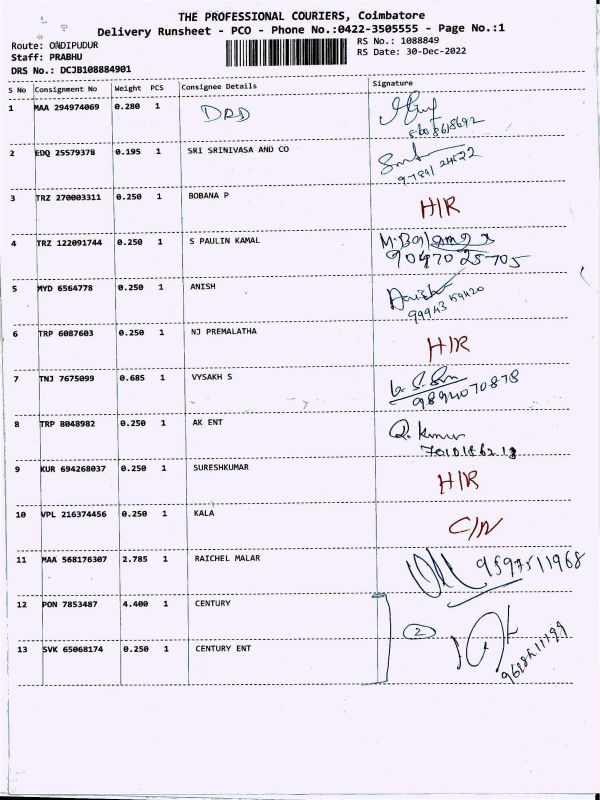 THE PROFESSIONAL COURIERS, Coimbatore
Delivery Runsheet - PCO - Phone No.:0422-3505555 - Page No.:1
Route: ONDIPUDUR
RS No.: 1088849
Staff: PRABHU
RS Date: 30-Dec-2022
DRS No.: DCJB108884901
S No Consignment No Weight PCS Consignee Details Signature
1 MAA 294974069 0.280 1 DRD
2 EDQ 25579378 0.195 1 SRI SRINIVASA AND CO
3 TRZ 270003311 0.250 1 BOBANA P H/R
4 TRZ 122091744 0.250 1 S PAULIN KAMAL
9047025705
5 MYD 6564778 0.250 1 ANISH
6 TRP 6087603 0.250 1 NJ PREMALATHA H/R
7 TNJ 7675099 0.685 1 VYSAKH S
9894070878
8 TRP 8048982 0.250 1 AK ENT
9 KUR 694268037 0.250 1 SURESHKUMAR H/R
10 VPL 216374456 0.250 1 KALA C/N
11 MAA 568176307 2.785 1 RAICHEL MALAR 9597511968
12 PON 7853487 4.400 1 CENTURY
2
13 SVK 65068174 0.250 1 CENTURY ENT